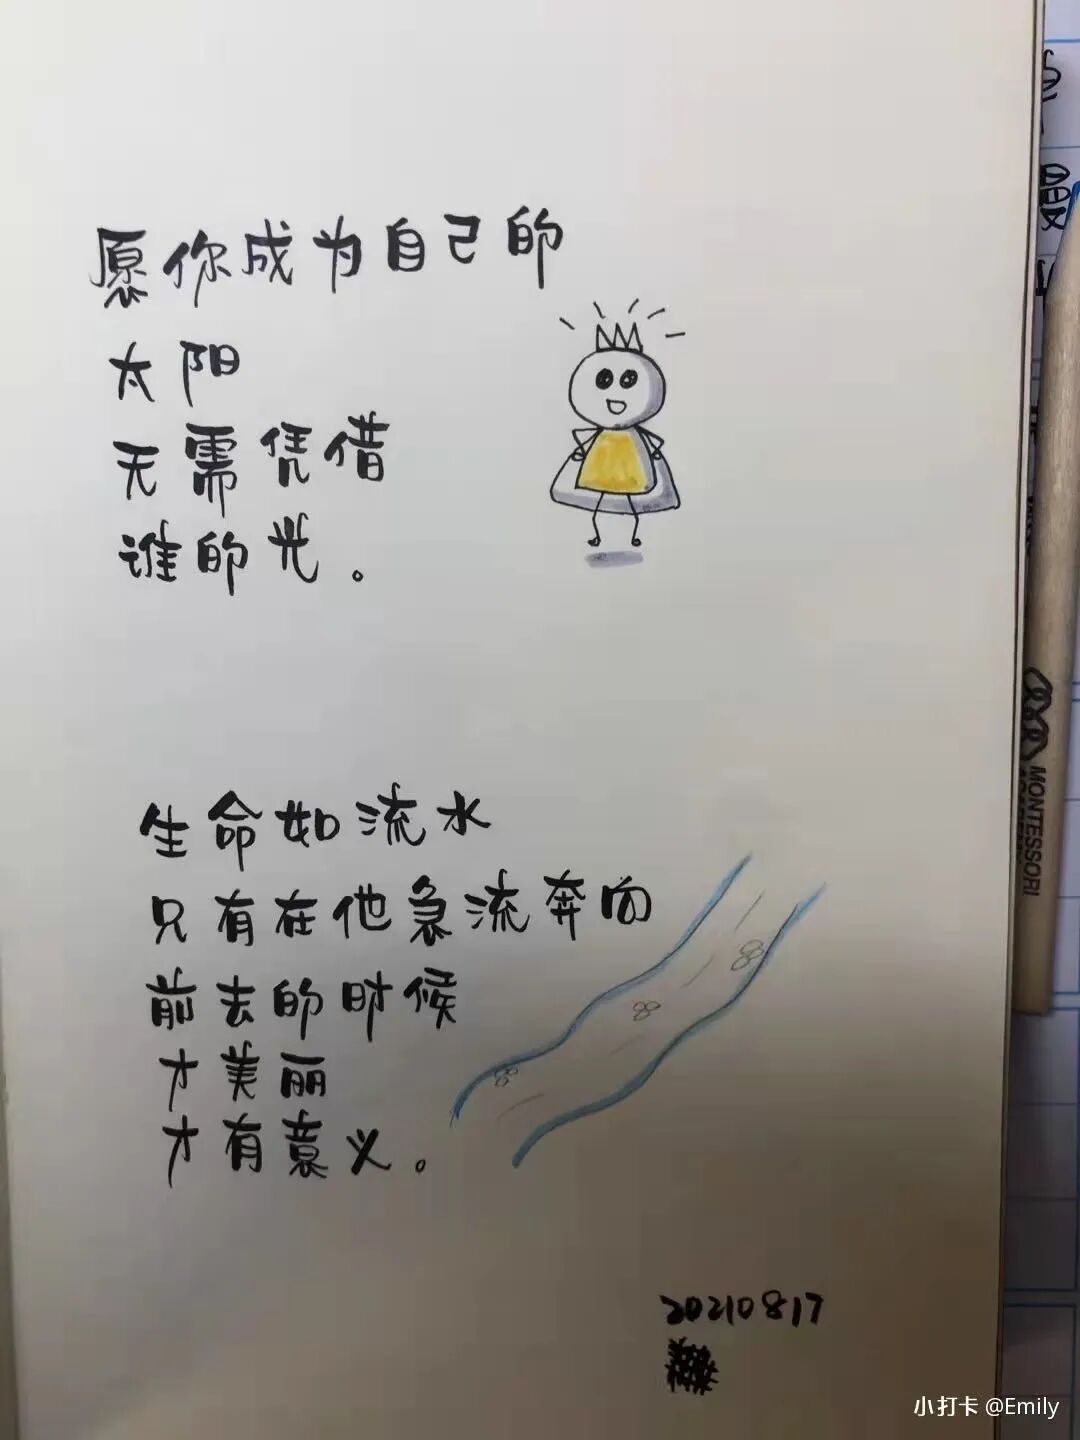 愿你成为自己的
太阳
无需凭借
谁的光。
生命如流水
只有在他急流奔向
前去的时候
才美丽
才有意义。
20210817
MONTESSORI
小打卡 @Emily